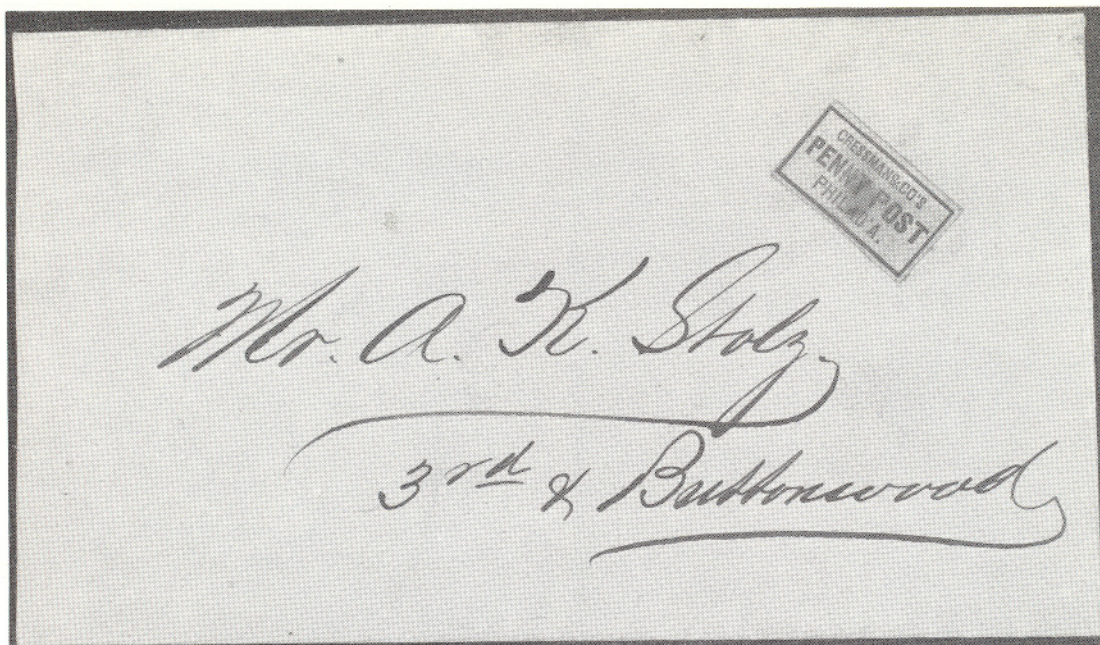 CRESSMAN & CO'S
PENNY POST
PHILAD A.
Mr. A. K. Stolz.
3rd & Buttonwood